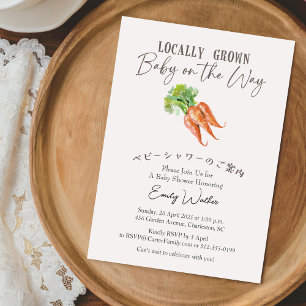 LOCALLY GROWN
Baby on the Way
ベビーシャワーのご案内
Please Join Us for
A Baby Shower Honoring
Emily Walker
Sunday, 20 April 2025 at 1:00 p.m.
456 Garden Avenue, Charleston, SC
Kindly RSVP by 5 April
to RSVP@Carter-Family.com or 512-555-0199
Can't wait to celebrate with you!